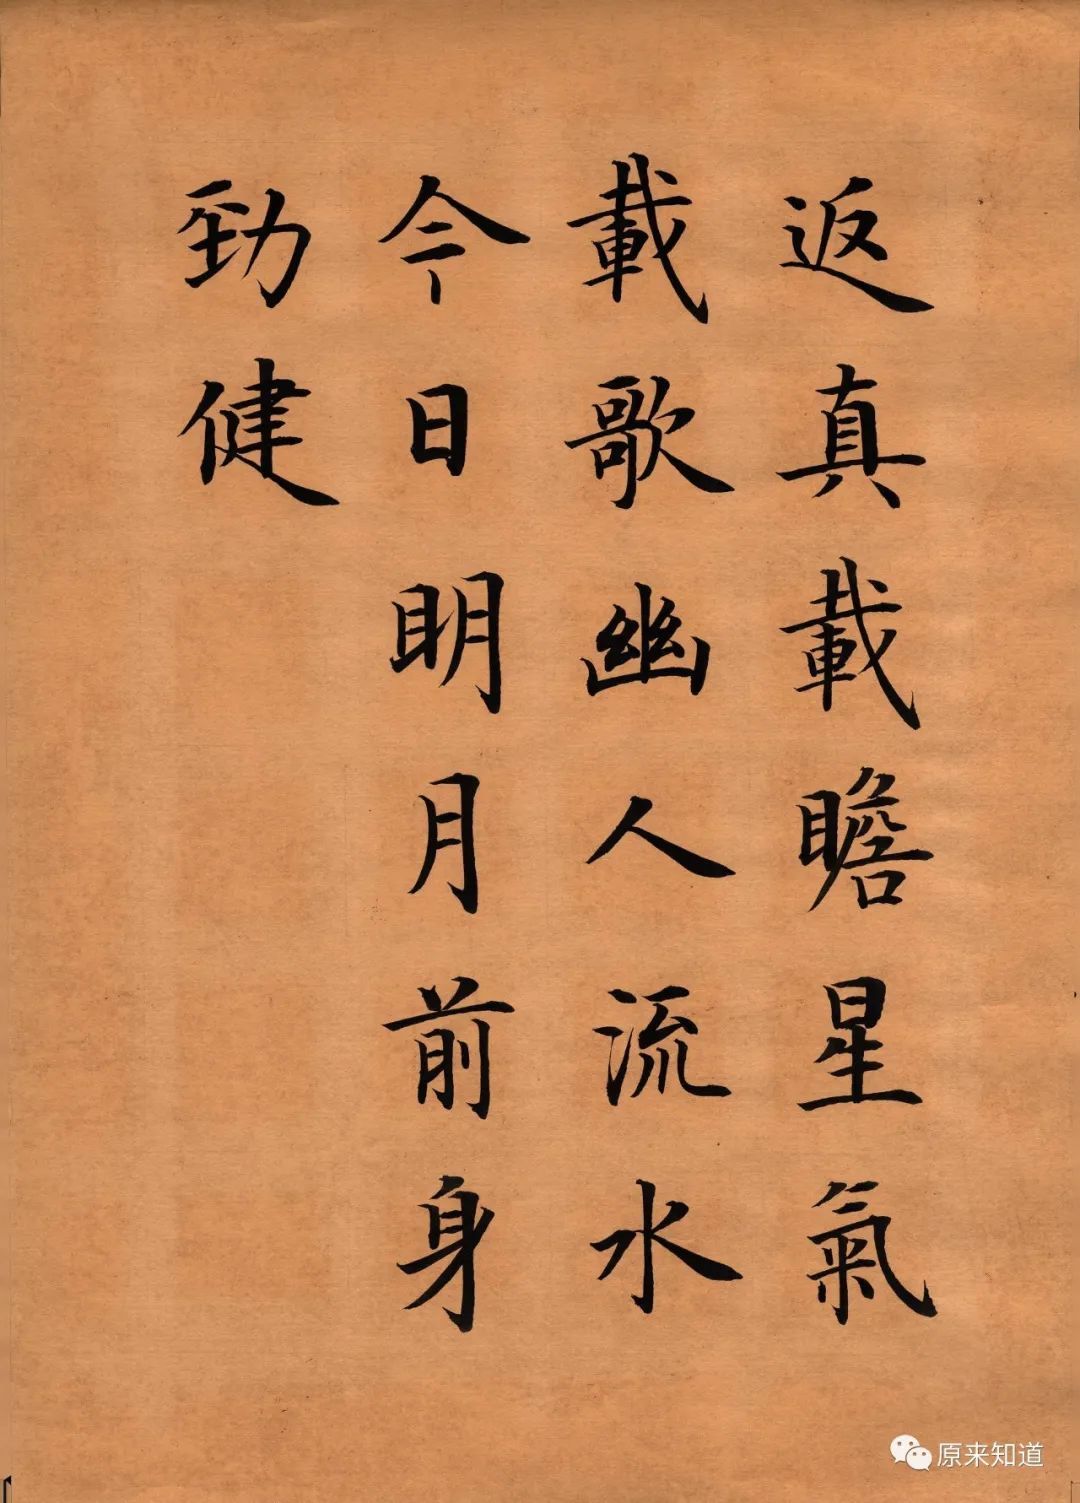 返真載瞻星氣
載歌幽人流水
今日明月前身
勁健
原来知道